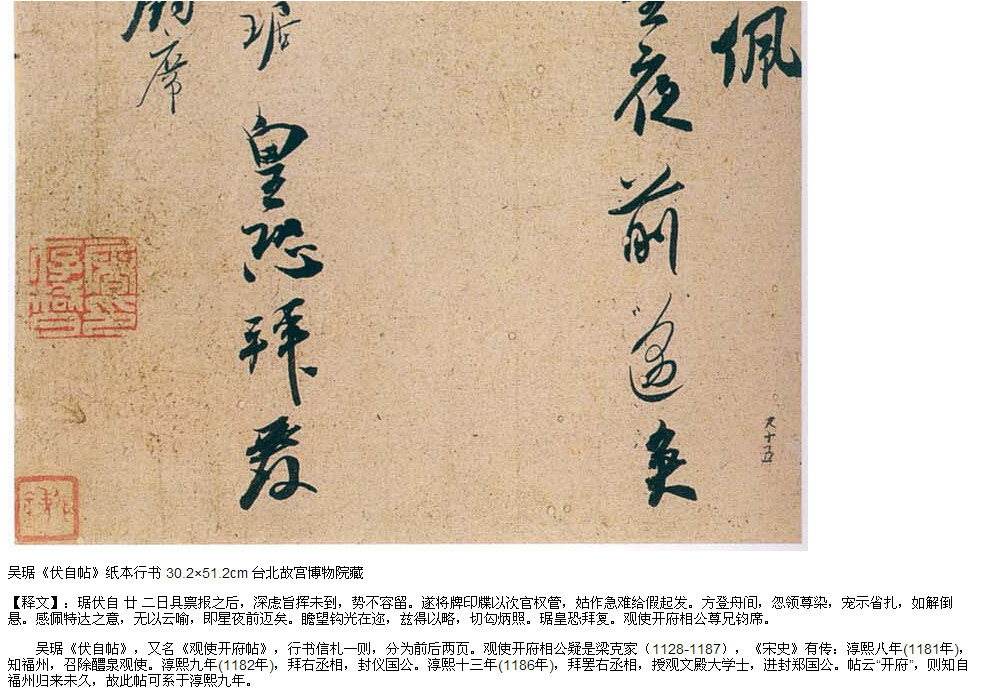 佩
星夜前邁矣
尺十五
琚皇恐拜覆
鈞席
吴琚《伏自帖》纸本行书 30.2×51.2cm 台北故宫博物院藏
【释文】：琚伏自 廿 二日具禀报之后，深虑旨挥未到，势不容留。遂将牌印牒以次官权管，姑作急难给假起发。方登舟间，忽领尊染，宠示省扎，如解倒
悬。感佩特达之意，无以云喻，即星夜前迈矣。瞻望钧光在迩，兹得以略，切匃炳照。琚皇恐拜复。观使开府相公尊兄钧席。
吴琚《伏自帖》，又名《观使开府帖》，行书信札一则，分为前后两页。观使开府相公疑是梁克家（1128-1187），《宋史》有传：淳熙八年(1181年)，
知福州，召除醴泉观使。淳熙九年(1182年)，拜右丞相，封仪国公。淳熙十三年(1186年)，拜罢右丞相，授观文殿大学士，进封郑国公。帖云“开府”，则知自
福州归来未久，故此帖可系于淳熙九年。